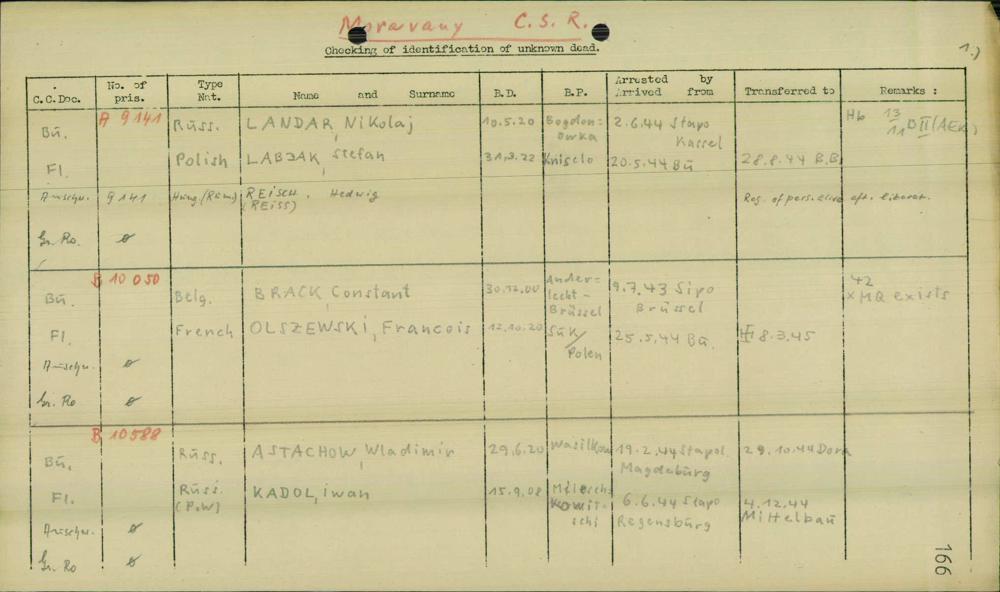 Moravany C.S.R.
Checking of identification of unknown dead.
1.)
C.C.Doc. No. of pris. Type Nat. Name and Surname B.D. B.P. Arrested by Arrived from Transferred to Remarks :
A 9141
Bü. Russ. LANDAR, Nikolaj 10.5.20 2.6.44 Stapo Kassel Hb 13 11 D II (AEK)
Fl. Polish LABJAK, Stefan Kniselo 20.5.44 Bü 28.8.44 B.B.
9141 Hung.(Rum) REISCH, Hedwig
(REISS)
Reg. of pers. alive aft. liberat.
Gr. Ro. ø
B 10 050
Bü. Belg. BRACK, Constant 30.12.00 Anderlecht - Brüssel 9.7.43 Sipo Brüssel 42
x MQ exists
Fl. French OLSZEWSKI, Francois 12.10.20 Suk/Polen 25.5.44 Bü. 8.3.45
ø
Gr. Ro ø
B 10588
Bü. Russ. ASTACHOW, Wladimir 29.6.20 Wasilkow 19.2.44 Stapol Magdeburg 29.10.44 Dora
Fl. Russ. (P.W) KADOL, iwan 15.9.08 6.6.44 Stapo Regensburg 4.12.44 Mittelbau
ø
Gr. Ro ø
166